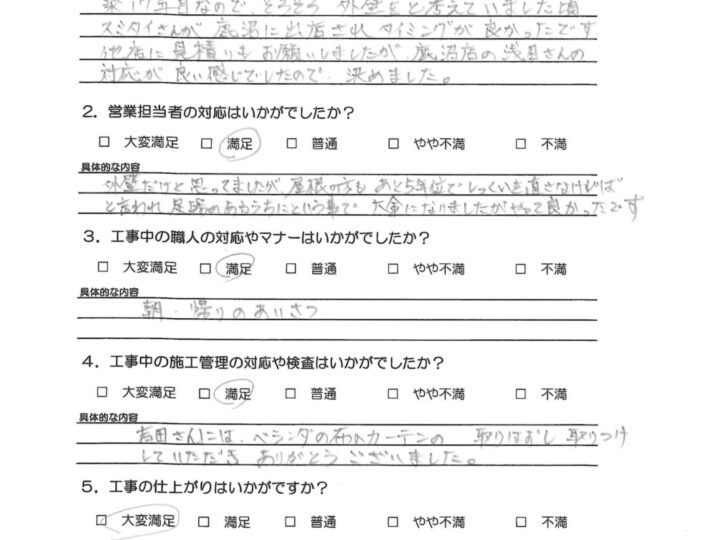 築17年目なので、そろそろ 外壁をと考えていました頃
スミタイさんが 鹿沼に出店され タイミングが 良かったです
他店に 見積りも お願いしましたが、鹿沼店の 浅田さんの
対応が 良い感じでしたので、決めました。
2. 営業担当者の対応はいかがでしたか？
□ 大変満足 □ 満足 □ 普通 □ やや不満 □ 不満
具体的な内容
外壁だけと 思ってましたが、屋根の方も あと5年位で しっくいを 直さなければ
と言われ 足場のあるうちにという事で 大金になりましたが やって良かったです
3. 工事中の職人の対応やマナーはいかがでしたか？
□ 大変満足 □ 満足 □ 普通 □ やや不満 □ 不満
具体的な内容
朝・帰りのあいさつ
4. 工事中の施工管理の対応や検査はいかがでしたか？
□ 大変満足 □ 満足 □ 普通 □ やや不満 □ 不満
具体的な内容
吉田さんには、ベランダの布のカーテンの 取りはずし 取りつけ
していただき ありがとう ございました。
5. 工事の仕上がりはいかがですか？
□ 大変満足 □ 満足 □ 普通 □ やや不満 □ 不満